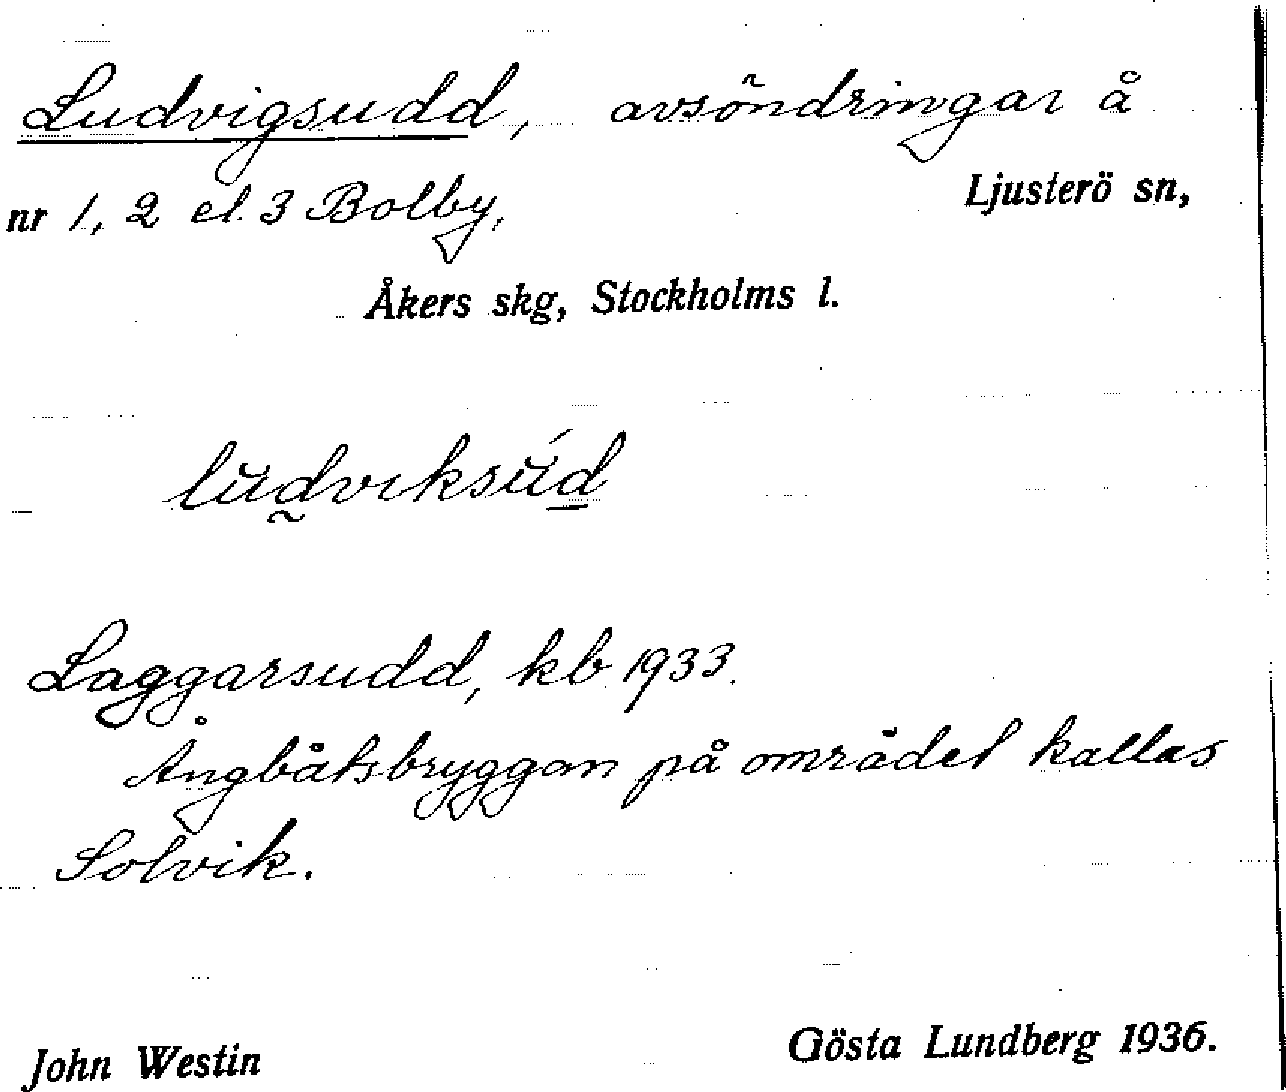 Ludvigsudd, avsöndringar å
nr 1, 2 el. 3 Bolby, Ljusterö sn,
Åkers skg, Stockholms l.
ludviksúd
Laggarsudd, kb 1933.
Ångbåtsbryggan på området kallas
Solvik.
John Westin Gösta Lundberg 1936.